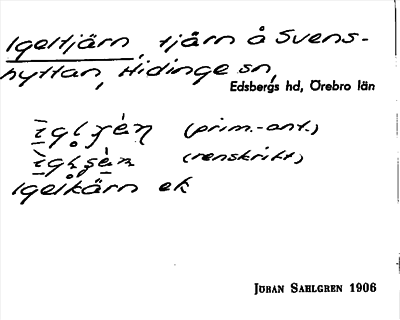 Igeltjärn, tjärn å Svens-
hyttan, Hidinge sn,
Edsbergs hd, Örebro län
(prim.-ant.)
(renskrift)
Igelkärn ek
JOHAN SAHLGREN 1906